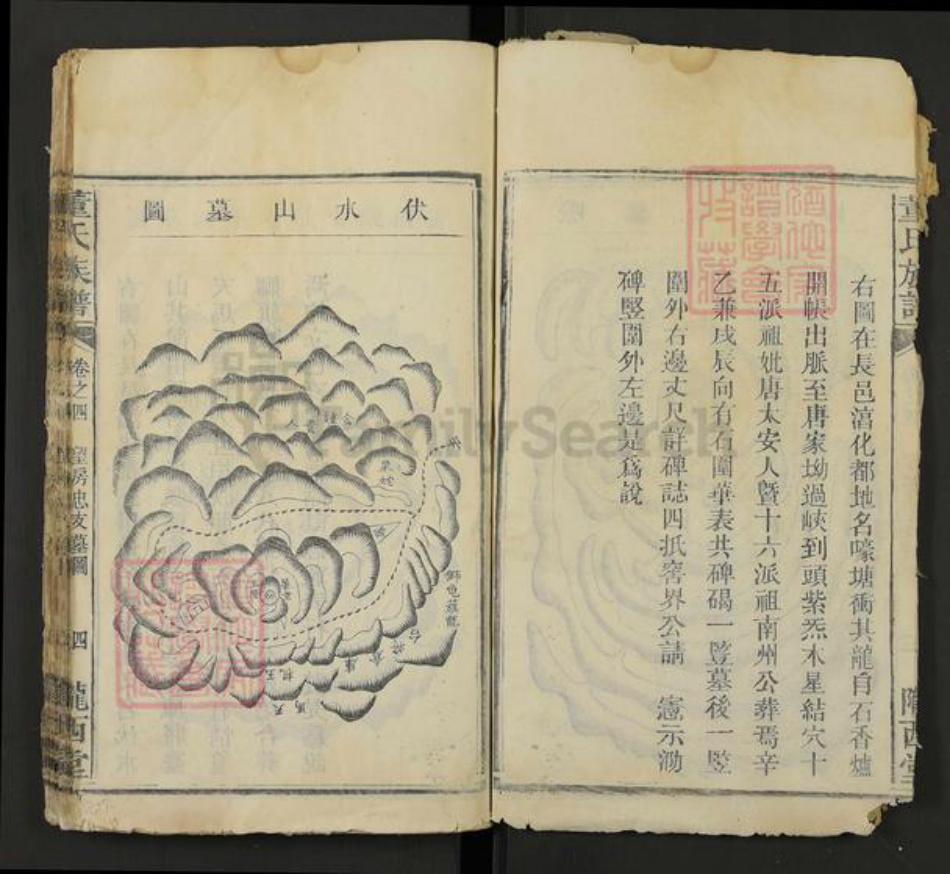 右圖在長邑㵮化都地名嚎塘衝其龍自石香爐
開帳出脈至唐家坳過峽到頭紫炁木星結穴十
五派祖妣唐太安人暨十六派祖南州公葬焉辛
乙兼戌辰向有石圍華表共碑碣一豎墓後一豎
圍外右邊丈尺詳碑誌四抵窖界公請　憲示泐
碑豎圍外左邊是爲說
董氏族譜
隴西堂
伏水山墓圖
獅皂蘇龍
董氏族譜
卷之四
忠友墓圖
四
隴西堂
FamilySearch